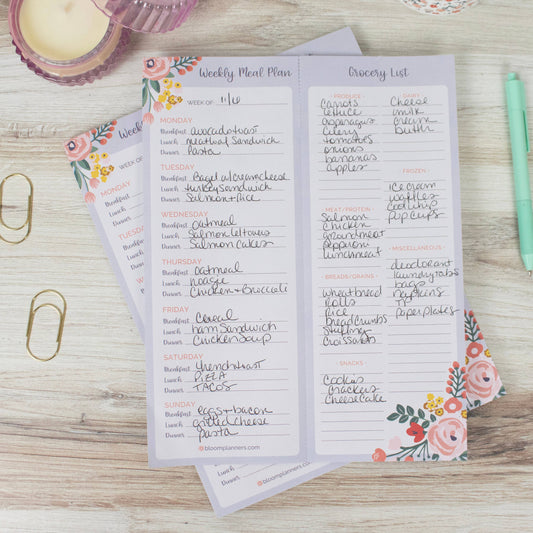 Weekly Meal Plan
WEEK OF: 11/6
MONDAY
Breakfast avocado toast
Lunch meatloaf sandwich
Dinner pasta
TUESDAY
Breakfast Bagel w/ creamcheese
Lunch turkey Sandwich
Dinner Salmon + Rice
WEDNESDAY
Breakfast oatmeal
Lunch Salmon leftovers
Dinner Salmon cakes
THURSDAY
Breakfast oatmeal
Lunch hoagie
Dinner Chicken + Broccoli
FRIDAY
Breakfast Cereal
Lunch ham Sandwich
Dinner Chicken Soup
SATURDAY
Breakfast french toast
Lunch PIZZA
Dinner TACOS
SUNDAY
Breakfast eggs + bacon
Lunch grilled cheese
Dinner pasta
bloomplanners.com
Grocery List
PRODUCE
carrots
lettuce
asparagus
celery
tomatoes
onions
bananas
apples
MEAT/PROTEIN
Salmon
Chicken
ground meat
pepperoni
lunchmeat
BREADS/GRAINS
wheat bread
rolls
Rice
bread crumbs
stuffing
croissants
SNACKS
cookies
crackers
cheesecake
DAIRY
Cheese
milk
cream
butter
FROZEN
ice cream
waffles
cool whip
pup cups
MISCELLANEOUS
deodorant
laundry tabs
bags
napkins
TP
paper plates
Weekly
WEEK OF:
MONDAY
Breakfast
Lunch
Dinner
TUESDAY
Breakfast
Lunch
Dinner
Breakfast
Lunch
Dinner
bloomplanners.com